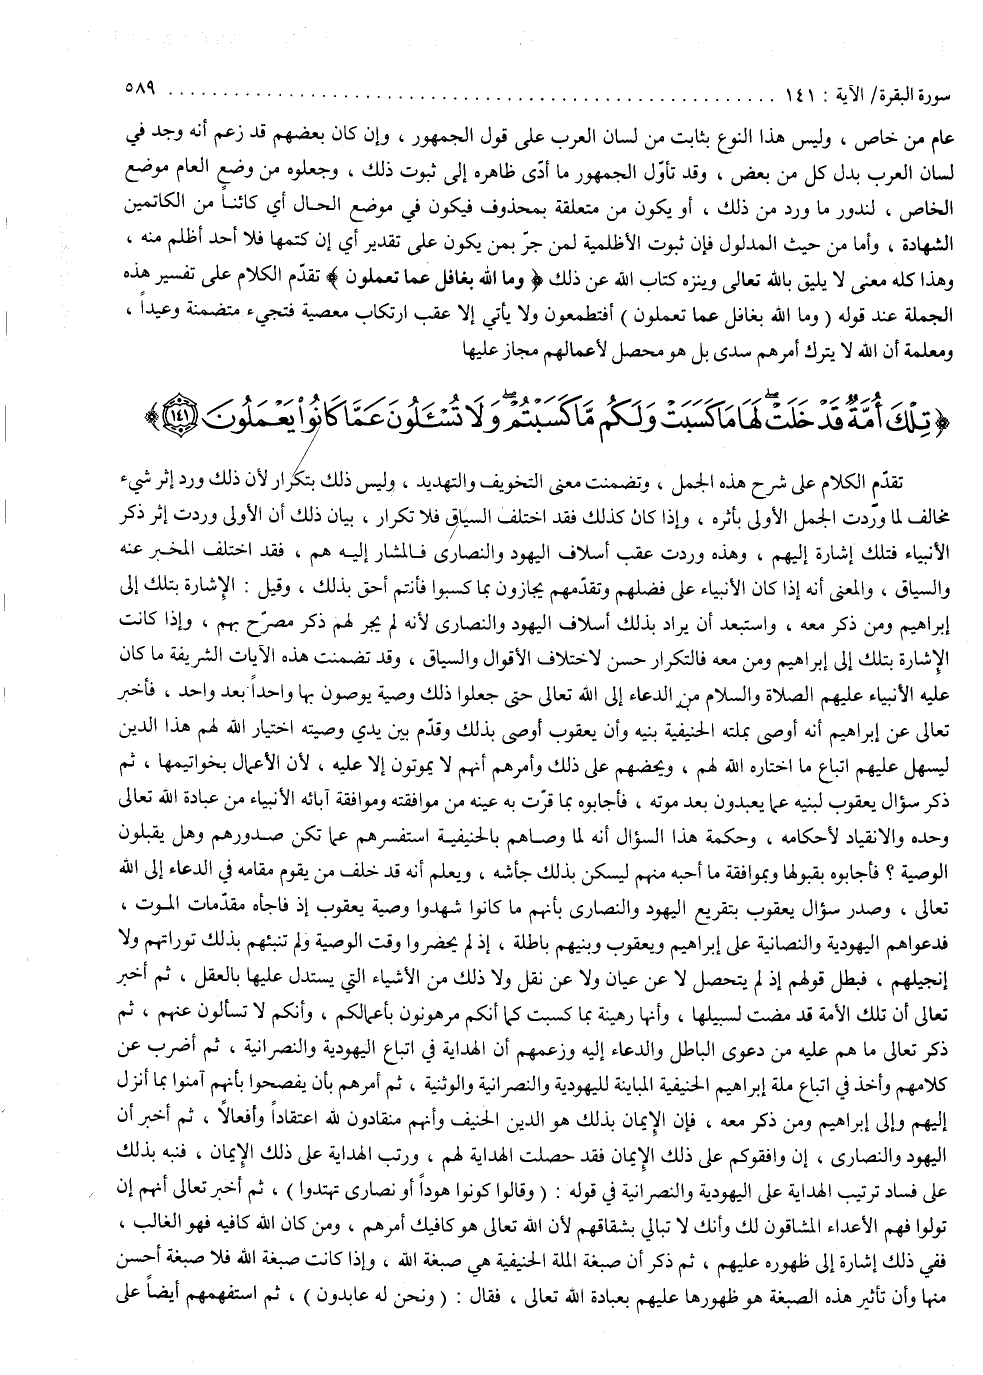 سورة البقرة/ الآية : ١٤١ .......................................................... ٥٨٩
عام من خاص ، وليس هذا النوع بثابت من لسان العرب على قول الجمهور ، وإن كان بعضهم قد زعم أنه وجد في
لسان العرب بدل كل من بعض ، وقد تأوّل الجمهور ما أدّى ظاهره إلى ثبوت ذلك ، وجعلوه من وضع العام موضع
الخاص ، لندور ما ورد من ذلك ، أو يكون من متعلقة بمحذوف فيكون في موضع الحال أي كائناً من الكاتمين
الشهادة ، وأما من حيث المدلول فإن ثبوت الأظلمية لمن جرّ بمن يكون على تقدير أي إن كتمها فلا أحد أظلم منه ،
وهذا كله معنى لا يليق بالله تعالى وينزه كتاب الله عن ذلك ﴿ وما الله بغافل عما تعملون ﴾ تقدّم الكلام على تفسير هذه
الجملة عند قوله ( وما الله بغافل عما تعملون ) أفتطمعون ولا يأتي إلا عقب ارتكاب معصية فتجيء متضمنة وعيداً ،
ومعلمة أن الله لا يترك أمرهم سدى بل هو محصل لأعمالهم مجاز عليها
﴿ تِلْكَ أُمَّةٌ قَدْ خَلَتْ ۖ لَهَا مَا كَسَبَتْ وَلَكُم مَّا كَسَبْتُمْ ۖ وَلَا تُسْـَٔلُونَ عَمَّا كَانُوا۟ يَعْمَلُونَ ١٤١ ﴾
تقدّم الكلام على شرح هذه الجمل ، وتضمنت معنى التخويف والتهديد ، وليس ذلك بتكرار لأن ذلك ورد إثر شيء
مخالف لما ورّدت الجمل الأولى بأثره ، وإذا كان كذلك فقد اختلف السياق فلا تكرار ، بيان ذلك أن الأولى وردت إثر ذكر
الأنبياء فتلك إشارة إليهم ، وهذه وردت عقب أسلاف اليهود والنصارى فالمشار إليه هم ، فقد اختلف المخبر عنه
والسياق ، والمعنى أنه إذا كان الأنبياء على فضلهم وتقدّمهم يجازون بما كسبوا فأنتم أحق بذلك ، وقيل : الإشارة بتلك إلى
إبراهيم ومن ذكر معه ، واستبعد أن يراد بذلك أسلاف اليهود والنصارى لأنه لم يجر لهم ذكر مصرّح بهم ، وإذا كانت
الإشارة بتلك إلى إبراهيم ومن معه فالتكرار حسن لاختلاف الأقوال والسياق ، وقد تضمنت هذه الآيات الشريفة ما كان
عليه الأنبياء عليهم الصلاة والسلام من الدعاء إلى الله تعالى حتى جعلوا ذلك وصية يوصون بها واحداً بعد واحد ، فأخبر
تعالى عن إبراهيم أنه أوصى بملته الحنيفية بنيه وأن يعقوب أوصى بذلك وقدّم بين يدي وصيته اختيار الله لهم هذا الدين
ليسهل عليهم اتباع ما اختاره الله لهم ، ويحضهم على ذلك وأمرهم أنهم لا يموتون إلا عليه ، لأن الأعمال بخواتيمها ، ثم
ذكر سؤال يعقوب لبنيه عما يعبدون بعد موته ، فأجابوه بما قرّت به عينه من موافقته وموافقة آبائه الأنبياء من عبادة الله تعالى
وحده والانقياد لأحكامه ، وحكمة هذا السؤال أنه لما وصاهم بالحنيفية استفسرهم عما تكن صدورهم وهل يقبلون
الوصية ؟ فأجابوه بقبولها وبموافقة ما أحبه منهم ليسكن بذلك جأشه ، ويعلم أنه قد خلف من يقوم مقامه في الدعاء إلى الله
تعالى ، وصدر سؤال يعقوب بتقريع اليهود والنصارى بأنهم ما كانوا شهدوا وصية يعقوب إذ فاجأه مقدّمات الموت ،
فدعواهم اليهودية والنصانية على إبراهيم ويعقوب وبنيهم باطلة ، إذ لم يحضروا وقت الوصية ولم تنبئهم بذلك توراتهم ولا
إنجيلهم ، فبطل قولهم إذ لم يتحصل لا عن عيان ولا عن نقل ولا ذلك من الأشياء التي يستدل عليها بالعقل ، ثم أخبر
تعالى أن تلك الأمة قد مضت لسبيلها ، وأنها رهينة بما كسبت كما أنكم مرهونون بأعمالكم ، وأنكم لا تسألون عنهم ، ثم
ذكر تعالى ما هم عليه من دعوى الباطل والدعاء إليه وزعمهم أن الهداية في اتباع اليهودية والنصرانية ، ثم أضرب عن
كلامهم وأخذ في اتباع ملة إبراهيم الحنيفية المباينة لليهودية والنصرانية والوثنية ، ثم أمرهم بأن يفصحوا بأنهم آمنوا بما أنزل
إليهم وإلى إبراهيم ومن ذكر معه ، فإن الإيمان بذلك هو الدين الحنيف وأنهم منقادون لله اعتقاداً وأفعالاً ، ثم أخبر أن
اليهود والنصارى ، إن وافقوكم على ذلك الإيمان فقد حصلت الهداية لهم ، ورتب الهداية على ذلك الإيمان ، فنبه بذلك
على فساد ترتيب الهداية على اليهودية والنصرانية في قوله : ( وقالوا كونوا هوداً أو نصارى تهتدوا ) ، ثم أخبر تعالى أنهم إن
تولوا فهم الأعداء المشاقون لك وأنك لا تبالي بشقاقهم لأن الله تعالى هو كافيك أمرهم ، ومن كان الله كافيه فهو الغالب ،
ففي ذلك إشارة إلى ظهوره عليهم ، ثم ذكر أن صبغة الملة الحنيفية هي صبغة الله ، وإذا كانت صبغة الله فلا صبغة أحسن
منها وأن تأثير هذه الصبغة هو ظهورها عليهم بعبادة الله تعالى ، فقال : ( ونحن له عابدون ) ، ثم استفهمهم أيضاً على